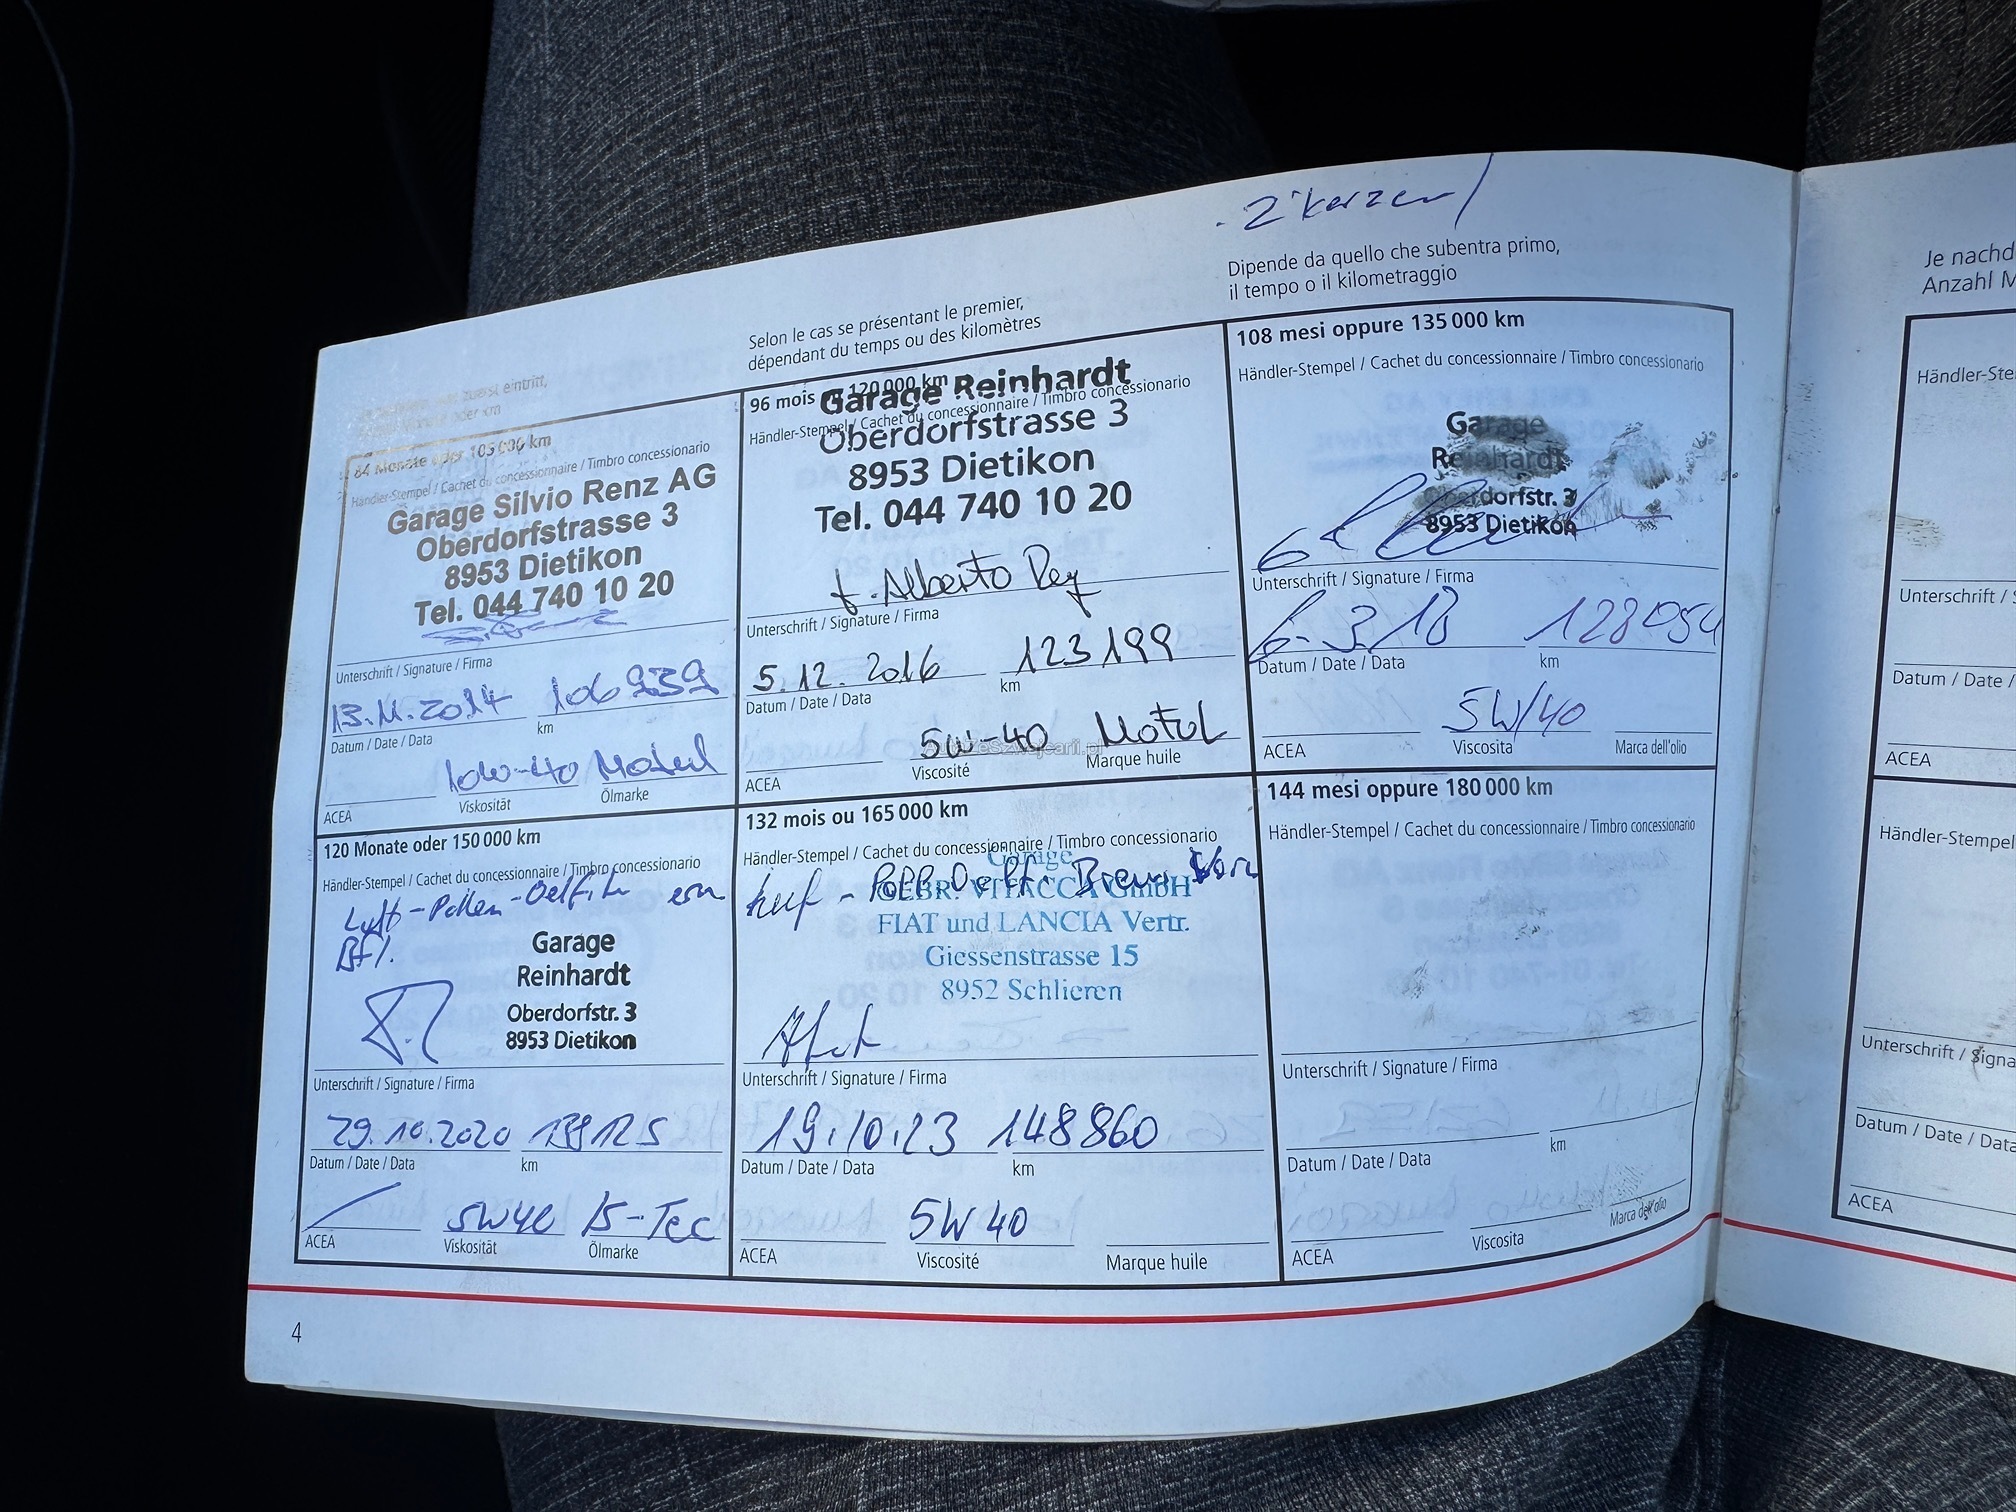 2'kerzen
Selon le cas se présentant le premier,
dépendant du temps ou des kilomètres
Dipende da quello che subentra primo,
il tempo o il kilometraggio
zuerst eintritt,
84 Monate oder 105 000 km
Händler-Stempel / Cachet du concessionnaire / Timbro concessionario
Garage Silvio Renz AG
Oberdorfstrasse 3
8953 Dietikon
Tel. 044 740 10 20
Unterschrift / Signature / Firma
13.11.2014 106939
Datum / Date / Data km
10W-40 Motul
ACEA Viskosität Ölmarke
96 mois 120 000 km
Händler-Stempel / Cachet du concessionnaire / Timbro concessionario
Garage Reinhardt
Oberdorfstrasse 3
8953 Dietikon
Tel. 044 740 10 20
f. Alberto Rey
Unterschrift / Signature / Firma
5.12.2016 123199
Datum / Date / Data km
5W-40 Motul
AutazeSzwajcarii.pl
ACEA Viscosité Marque huile
108 mesi oppure 135 000 km
Händler-Stempel / Cachet du concessionnaire / Timbro concessionario
Garage
Reinhardt
Oberdorfstr. 3
8953 Dietikon
Unterschrift / Signature / Firma
6.3.18 128054
Datum / Date / Data km
5W/40
ACEA Viscosita Marca dell'olio
120 Monate oder 150 000 km
Händler-Stempel / Cachet du concessionnaire / Timbro concessionario
Luft-Pollen-Oelfilter ern
Bfl.
Garage
Reinhardt
Oberdorfstr. 3
8953 Dietikon
Unterschrift / Signature / Firma
29.10.2020 139125
Datum / Date / Data km
5W40 IS-Tec
ACEA Viskosität Ölmarke
132 mois ou 165 000 km
Händler-Stempel / Cachet du concessionnaire / Timbro concessionario
Garage
GEBR. VITACCA GmbH
FIAT und LANCIA Vertr.
Giessenstrasse 15
8952 Schlieren
Unterschrift / Signature / Firma
19.10.23 148860
Datum / Date / Data km
5W40
ACEA Viscosité Marque huile
144 mesi oppure 180 000 km
Händler-Stempel / Cachet du concessionnaire / Timbro concessionario
Unterschrift / Signature / Firma
Datum / Date / Data km
ACEA Viscosita Marca dell'olio
4
Je nachd
Anzahl M
Händler-Ste
Unterschrift / S
Datum / Date /
ACEA
Händler-Stempel
Unterschrift / Signa
Datum / Date / Data
ACEA